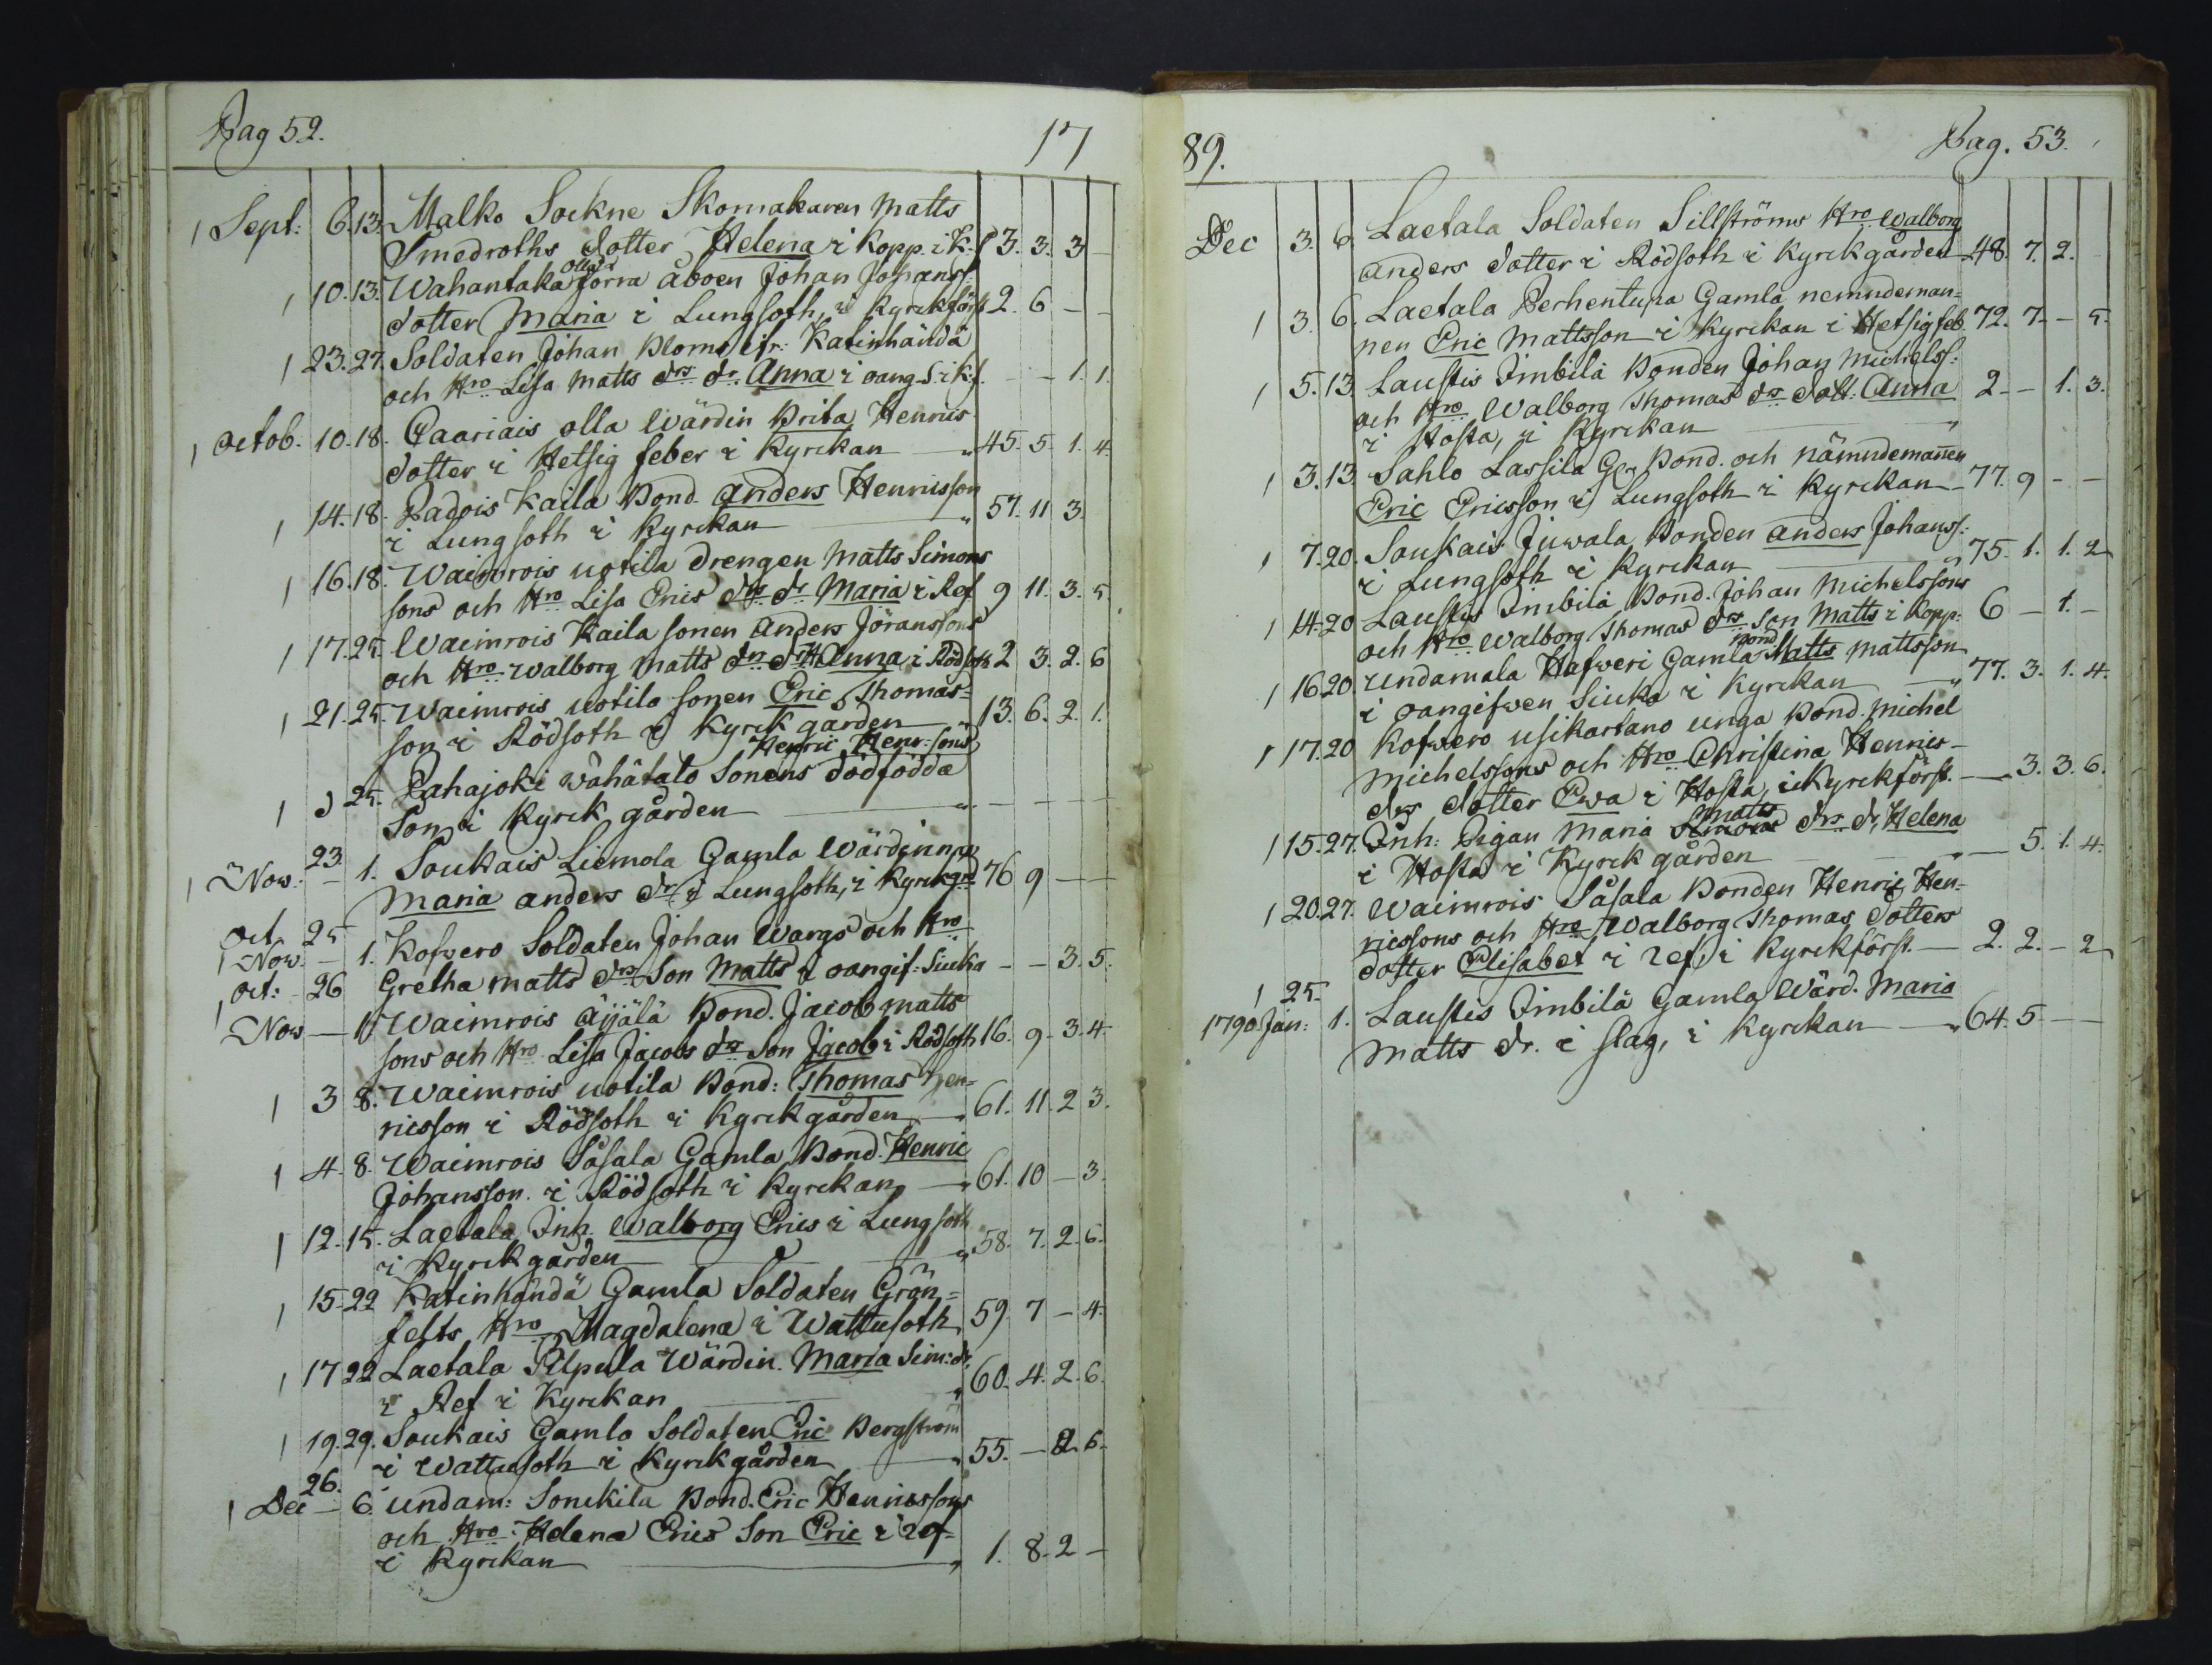 Pag 52. 17
1 Sept: 6. 13. Malko Sockne Skomakaren Matts
Smedroths dotter Helena i Kopp. i K:f 3. 3. 3 –
1 10. 13. Wahantaka Olla förra åboen Johan Johanss:
dotter Maria i Lungsoth, i Kyrckförst 2. 6 – –
1 23. 27. Soldaten Johan Bloms ifr: Katinhändä
och Hro Lisa Matts drs dr. Anna i oang. S. i K:f. – – 1. 1.
1 Octob. 10. 18. Paariais olla Wärdin Brita Henrics
dotter i Hetsig feber i Kyrckan „ 45. 5. 1. 4.
1 14. 18. Padois Kaila Bond. Anders Henricsson
i Lungsoth i Kyrckan „ 57. 11 3.
1 16. 18. Waimrois uotila drengen Matts Simons
sons och Hro Lisa Erics drs dr Maria i Ref 9 11. 3. 5
1 17. 25. Waimrois Kaila sonen Anders Jöranssons
och Hro Walborg Matts drs dr Anna i Rödsoth 2 3. 2. 6
1 21. 25. Waimrois uotila sonen Eric Thomas=
son i Rödsoth i Kyrckgården „ 13. 6. 2. 1.
Henric Henr: sons
1 25. Pahajoki Wähätalo Sonens dödfödda
Son i Kyrck gården „ – – – –
23
1 Nov. – 1. Soukais Liemola Gamla Wärdinna
Maria anders dr i Lungsoth, i Kyrckgn 76 9 – –
Oct. 25
1 Nov. – 1. Kofwero Soldaten Johan Wargs och Hro
Oct: 26 Gretha Matts drs Son Matts i oangif: Siuka – – 3. 5.
1 Nov – 1 Waimrois Äijälä Bond. Jacob Matts
sons och Hro Lisa Jacobs drs Son Jacob i Rödsoth 16. 9. 3. 4.
1 3 8. Waimrois uotila Bond: Thomas Hen=
ricsson i Rödsoth i Kyrckgården „ 61. 11. 2 3.
1 4. 8. Waimrois Såsala Gamla Bond. Henric
Johansson i Rödsoth i Kyrckan „ 61. 10 – 3.
1 12. 15. Laetala Inh. Walborg Erics i Lungsoth
i Kyrckgården „ 58. 7. 2. 6.
1 15. 22 Katinhändä Gamla Soldaten Grön=
felts Hro Magdalena i Wattusoth 59. 7 – 4.
1 17 22 Laetala Pilpula Wärdin. Maria Sim: dr.
i Ref i Kyrckan „ 60. 4. 2. 6.
1 19. 29. Soukais Gamla Soldaten Eric Bergström
i Wattusoth i Kyrckgården „ 55. – 2. 6.
26.
1 Dec – 6 undam: Sonckila Bond. Eric Henricssons
och Hro Helena Erics Son Eric i ref
i Kyrckan „ 1. 8. 2 –
89. Pag. 53.
Dec 3. 6. Laetala Soldaten Sillströms Hro Walborg
anders dotter i Rödsoth i Kyrckgården 48. 7. 2.
1 3. 6. Laetala Perhentupa Gamla nemndeman=
nen Eric Mattsson i Kyrckan i Hetsig feb. 72. 7. – 5.
1 5. 13. Laustis Imbilä Bonden Johan Michelss:
och Hro Walborg Thomas drs dott: Anna 2 – 1. 3.
i Hosta, i Kyrckan „
1 3. 13. Sahlo Lassila Gl. Bond. och nämndemannen
Eric Ericsson i Lungsoth i Kyrckan 77. 9 – –
1 7. 20. Soukais Juwala Bonden anders Johanss:
i Lungsoth i Kyrckan „ 75. 1. 1. 2
1 14. 20 Laustis Imbilä Bond. Johan Michelssons
och Hro Walborg Thomas drs Son Matts i Kopp. 6 – 1. –
1 16 20. undamala Hafweri Gamla Bond Matts Mattsson
i oangifwen Siuka i Kyrckan „ 77. 3. 1. 4.
1 17. 20 Kofwero usikartano unga Bond. Michel
Michelssons och Hro Christina Henrics
drs dotter Ewa i Hosta, i Kyrckförst. – 3. 3. 6.
1 15. 27. Inh: Pigan Maria Matts drs dr. Helena
i Hosta i Kyrck gården „ – 5. 1. 4.
1 20. 27. Waimrois Såsala Bonden Henric Hen=
ricssons och Hro Walborg Thomas dotters
dotter Elisabet i ref. i Kyrckförst. – 2. 2. – 2
1 25.
1790 Jan: 1. Laustis Imbilä Gamla Wärd. Maria
Matts dr. i slag, i Kyrckan „ 64. 5 – –